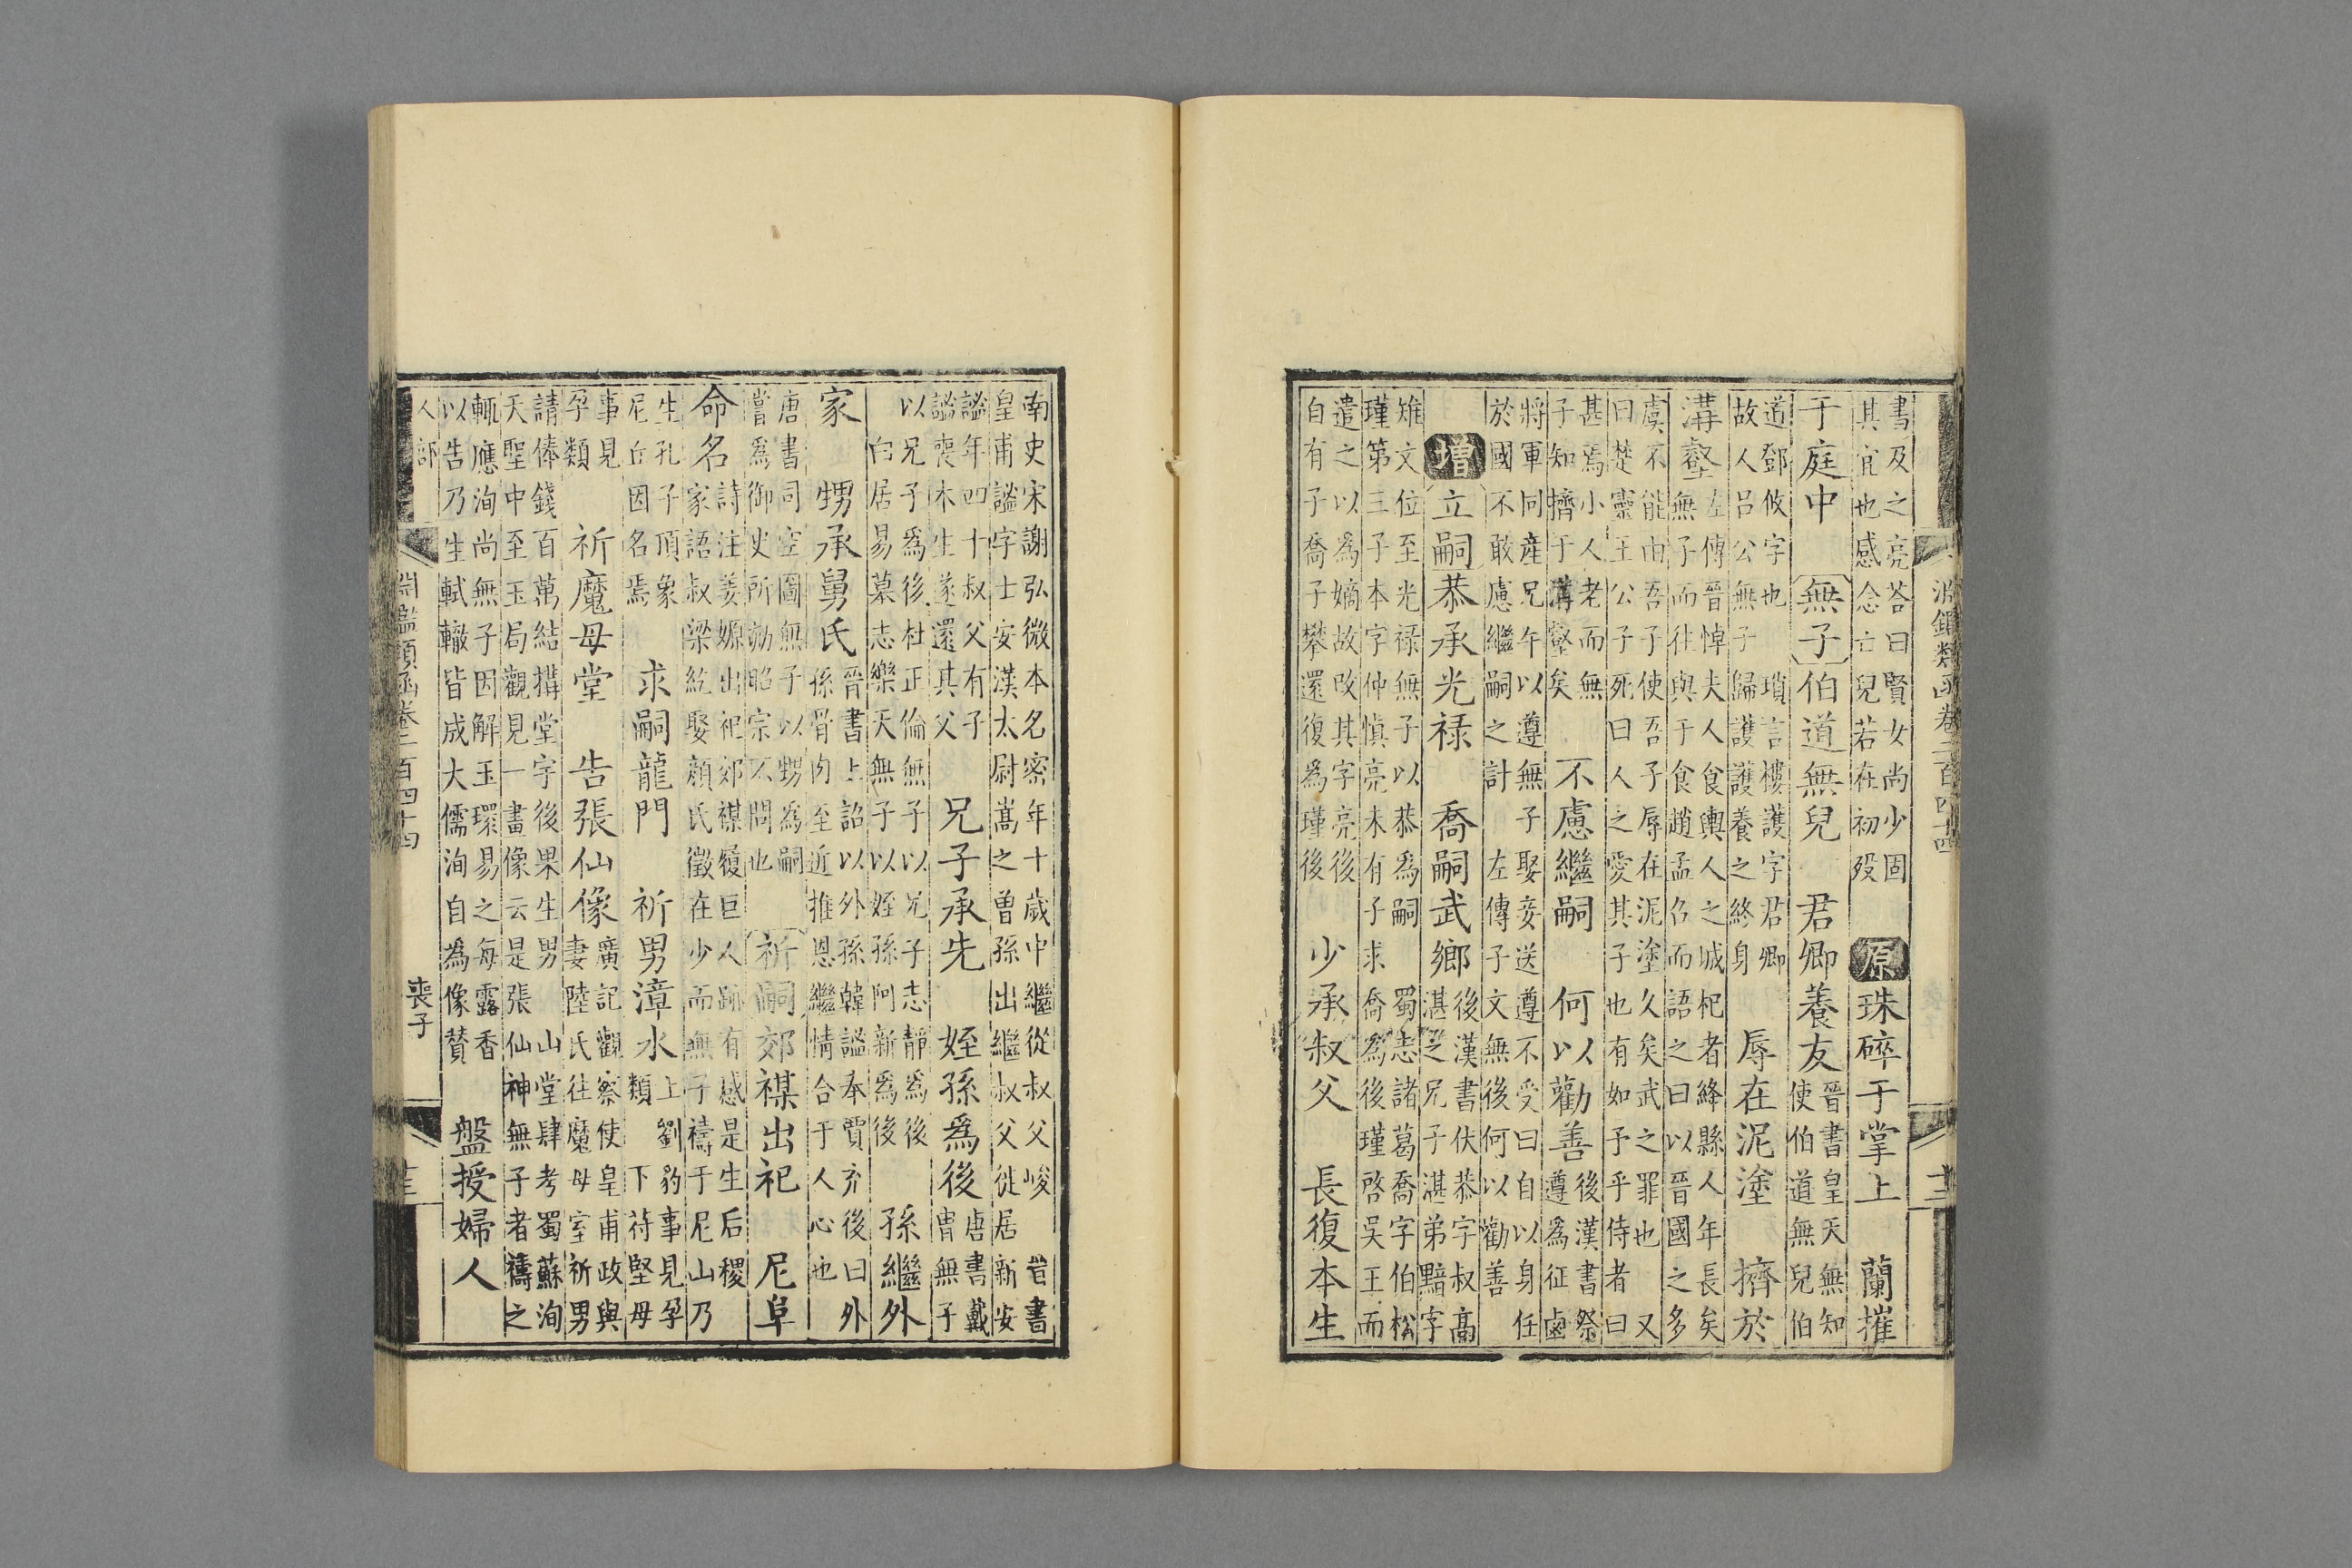 淵鑑類函卷二百四十四 十二
書及之亮荅曰賢女尚少固
其宜也感念亡兒若在初歿
原 珠碎于掌上 蘭摧
于庭中 無子 伯道無兒 君卿養友
晉書皇天無知
使伯道無兒伯
道鄧攸字也 瑣言樓護字君卿
故人呂公無子歸護護養之終身
辱在泥塗 擠於
溝壑
左傳晉悼夫人食輿人之城杞者絳縣人年長矣
無子而往與于食趙孟召而語之曰以晉國之多
虞不能由吾子使吾子辱在泥塗久矣武之罪也 又
曰楚靈王公子死曰人之愛其子也有如予乎侍者曰
甚焉小人老而無
子知擠于溝壑矣
不慮繼嗣 何以勸善
後漢書祭
遵爲征鹵
將軍同産兄午以遵無子娶妾送遵不受曰自以身任
於國不敢慮繼嗣之計 左傳子文無後何以勸善
增 立嗣 恭承光禄 喬嗣武鄉
後漢書伏恭字叔髙
湛之兄子湛弟黯字
雉文位至光禄無子以恭爲嗣 蜀志諸葛喬字伯松
瑾第三子本字仲慎亮未有子求喬爲後瑾啓吳王而
遣之以爲嫡故攺其字亮後
自有子喬子攀還復爲瑾後
少承叔父 長復本生
南史宋謝弘微本名密年十歲中繼從叔父峻 晉書
皇甫謐字士安漢太尉嵩之曽孫出繼叔父徙居新安
謐年四十叔父有子
謐喪木生遂還其父
兄子承先 姪孫爲後
唐書戴
胄無子
以兄子爲後杜正倫無子以兄子志靜爲後
白居易墓志樂天無子以姪孫阿新爲後
孫繼外
家 甥承舅氏
晉書上詔以外孫韓謐奉賈充後曰外
孫骨肉至近推恩繼情合于人心也
唐書司空圖無子以甥爲嗣
嘗爲御史所劾昭宗不問也
祈嗣 郊禖出祀 尼阜
命名
詩注姜嫄出祀郊禖履巨人跡有感是生后稷
家語叔梁紇娶顏氏徵在少而無子禱于尼山乃
生孔子頂象
尼丘因名焉
求嗣龍門 祈男漳水
上劉豹事見孕
類 下苻堅母
事見
孕類
祈魔母堂 告張仙像
廣記觀察使皇甫政與
妻陸氏往魔母室祈男
請俸錢百萬結搆堂宇後果生男 山堂肆考蜀蘇洵
天聖中至玉局觀見一畫像云是張仙神無子者禱之
輒應洵尚無子因解玉環易之每露香
以告乃生軾轍皆成大儒洵自爲像賛
盤授婦人
人部 淵鑑類函卷二百四十四 喪子